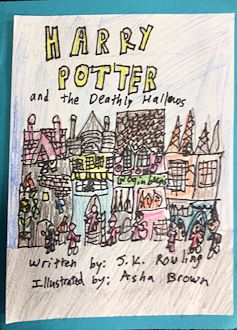 HARRY
POTTER
and the Deathly Hallows
Written by: J.K. Rowling
Illustrated by: Asha Brown